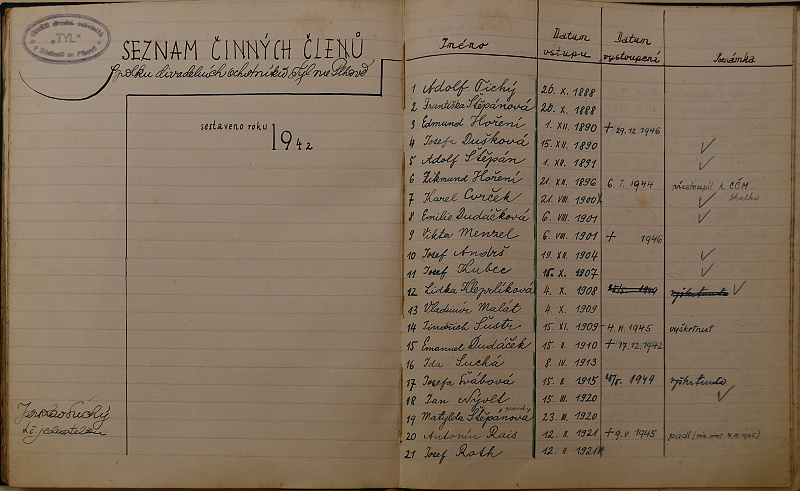 "TYL"
SEZNAM ČINNÝCH ČLENŮ
Spolku divadelních ochotníků Tyl
sestaveno roku 1942
Jméno Datum vstupu Datum vystoupení Poznámka
1 Adolf Tichý 20. X. 1888
2 Františka Štěpánová 20. X. 1888
3 Edmund Hoření 1. XII. 1890 + 29.12.1946
4 Josefa Dušková 15. XII. 1890 ✓
5 Adolf Štěpán 1. XII. 1891 ✓
6 Zikmund Hoření 21. XII. 1896 6. I. 1944 přestoupil k
7 Karel Cvrček 21. VIII. 1900 ✓
8 Emilie Dudáčková 6. VIII. 1901 ✓
9 Viktor Menzel 6. VIII. 1901 + 1946
10 Josef Andrš 19. XII. 1904 ✓
11 Josef Kubec 15. X. 1907 ✓
12 Lidka Kleprlíková 4. X. 1908 ✓
13 Vladimír Malát 4. X. 1909
14 Jindřich Šustr 15. XI. 1909 4. II. 1945 vyškrtnut
15 Emanuel Dudáček 15. II. 1910 + 17.12.1942
16 Ida Suchá 8. IV. 1913
17 Josefa Švábová 15. II. 1915 1949
18 Jan Nývlt 15. III. 1920 ✓
19 Matylda Štěpánová 23. III. 1920
20 Antonín Rais 12. II. 1921 + 9. V. 1945 padl
21 Josef Roth 12. II. 1921
jednatel